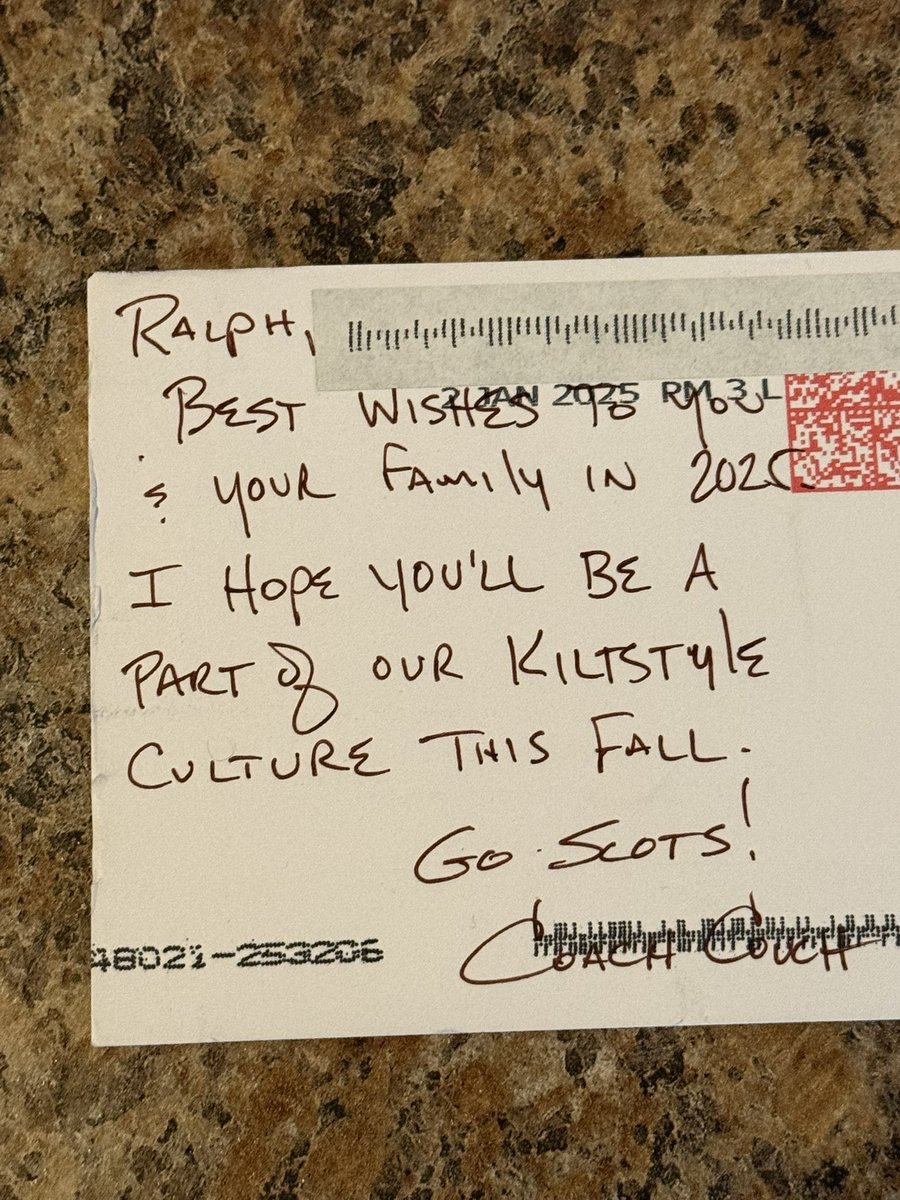 Ralph,
2 JAN 2025 RM 3 L
Best Wishes to you
& your family in 2025.
I Hope you'll Be A
Part of our Kiltstyle
Culture This Fall.
Go Scots!
48021-253206
Coach Couch